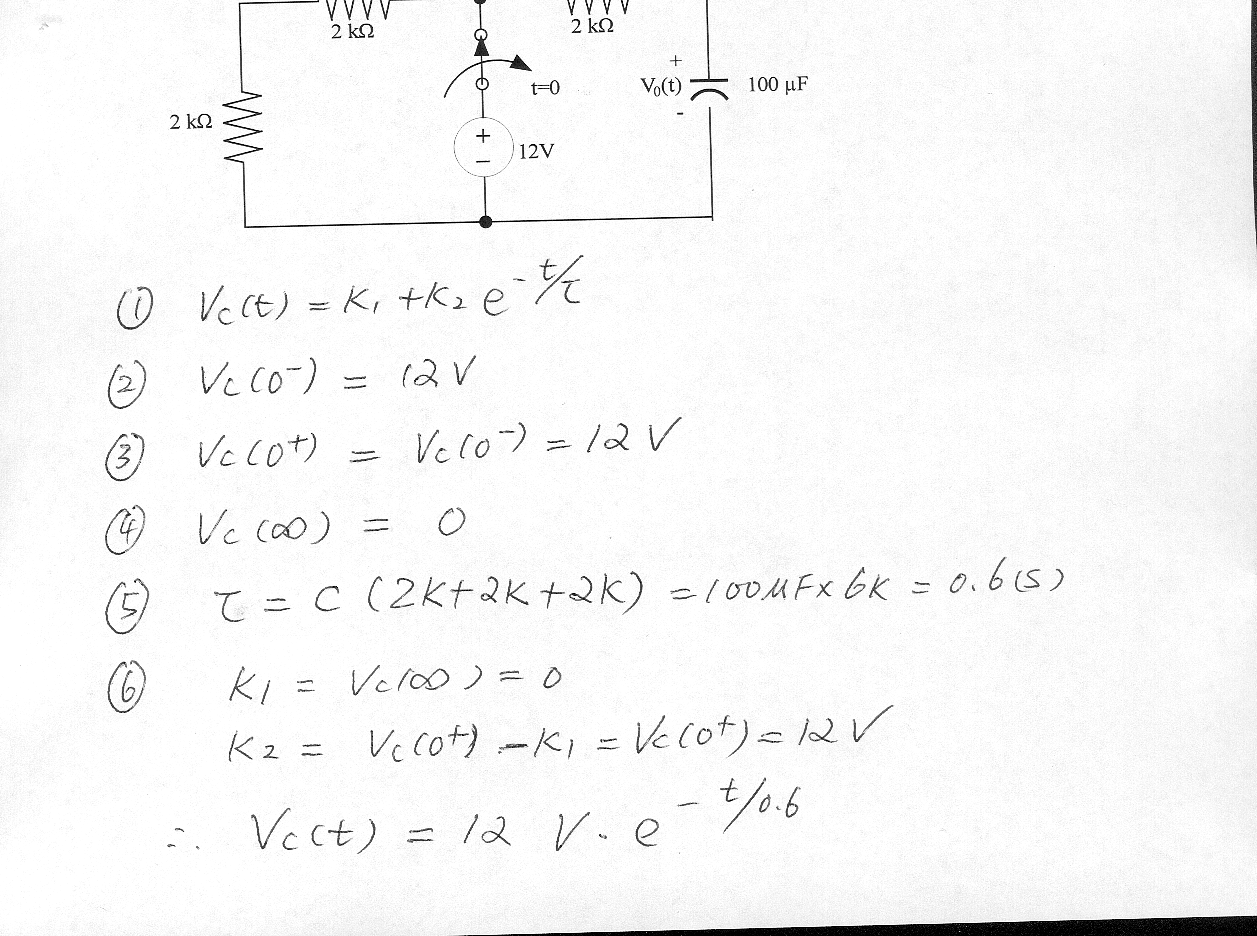 2 kΩ
2 kΩ
+
t=0
V₀(t)
100 μF
-
2 kΩ
+
12V
−
① Vc(t) = K₁ + K₂ e^-t/τ
② Vc(0⁻) = 12 V
③ Vc(0⁺) = Vc(0⁻) = 12 V
④ Vc(∞) = 0
⑤ τ = C (2K+2K+2K) = 100MF×6K = 0.6(S)
⑥ K1 = Vc(∞) = 0
K2 = Vc(0⁺) − K₁ = Vc(0⁺) = 12 V
∴ Vc(t) = 12 V · e^-t/0.6